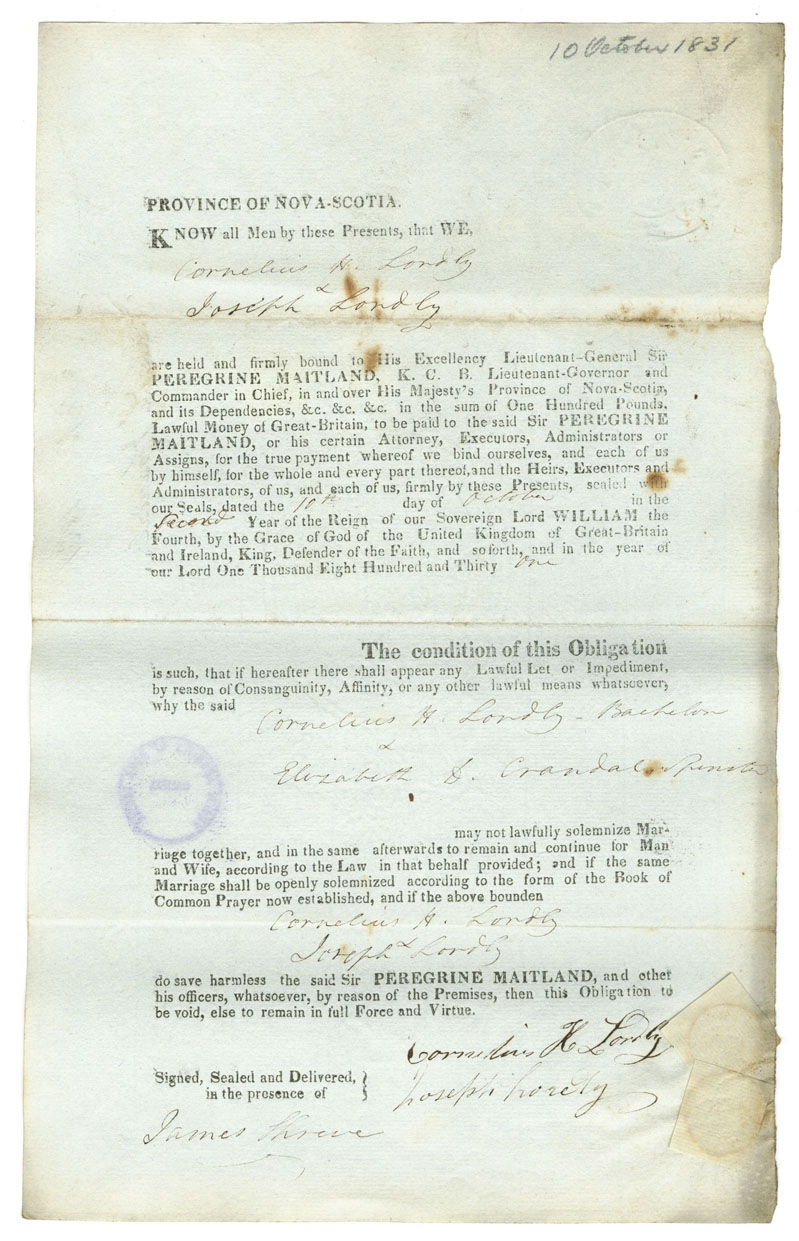 10 October 1831
PROVINCE OF NOVA-SCOTIA.
KNOW all Men by these Presents, that WE,
Cornelius H. Lordly
&
Joseph Lordly
are held and firmly bound to His Excellency Lieutenant-General Sir
PEREGRINE MAITLAND, K. C. B. Lieutenant-Governor and
Commander in Chief, in and over His Majesty's Province of Nova-Scotia,
and its Dependencies, &c. &c. &c. in the sum of One Hundred Pounds,
Lawful Money of Great-Britain, to be paid to the said Sir PEREGRINE
MAITLAND, or his certain Attorney, Executors, Administrators or
Assigns, for the true payment whereof we bind ourselves, and each of us
by himself, for the whole and every part thereof, and the Heirs, Executors and
Administrators, of us, and each of us, firmly by these Presents, sealed with
our Seals, dated the 10th day of October in the
Second Year of the Reign of our Sovereign Lord WILLIAM the
Fourth, by the Grace of God of the United Kingdom of Great-Britain
and Ireland, King, Defender of the Faith, and so forth, and in the year of
our Lord One Thousand Eight Hundred and Thirty one
The condition of this Obligation
is such, that if hereafter there shall appear any Lawful Let or Impediment,
by reason of Consanguinity, Affinity, or any other lawful means whatsoever,
why the said
Cornelius H. Lordly - Bachelor
&
Elizabeth A. Crandal - Spinster
may not lawfully solemnize Mar-
riage together, and in the same afterwards to remain and continue for Man
and Wife, according to the Law in that behalf provided; and if the same
Marriage shall be openly solemnized according to the form of the Book of
Common Prayer now established, and if the above bounden
Cornelius H. Lordly
&
Joseph Lordly
do save harmless the said Sir PEREGRINE MAITLAND, and other
his officers, whatsoever, by reason of the Premises, then this Obligation to
be void, else to remain in full Force and Virtue.
Cornelius H Lordly
Signed, Sealed and Delivered,
in the presence of
Joseph Lordly
James Shreve